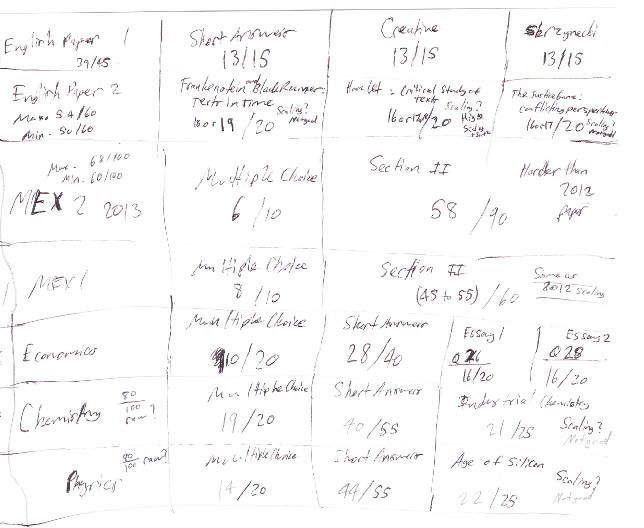 English Paper 1
39/45
Short Answers
13/15
Creative
13/15
Skrzynecki
13/15
English Paper 2
Max. 54/60
Min. 50/60
Frankenstein and Blade Runner:
Texts in Time
16 or 19 / 20
Scaling?
Not good
Hamlet: Critical Study of
Texts
/20
Scaling?
The Justice Game:
Conflicting perspectives
16 or 17 / 20
Scaling?
Not good
Max. 68/100
Min. 60/100
MEX 2 2013
Multiple Choice
6/10
Section II
58/90
Harder than
2012
paper
MEX 1
Multiple Choice
8/10
Section II
(45 to 55) / 60
Same as
2012 scaling
Economics
Multiple Choice
10/20
Short Answers
28/40
Essay 1
Q 26
16/20
Essay 2
Q 28
16/20
Chemistry
80/100 raw?
Multiple Choice
19/20
Short Answers
40/55
Industrial Chemistry
21/25
Scaling?
Not good
Physics
80/100 raw?
Multiple Choice
14/20
Short Answers
44/55
Age of Silicon
22/25
Scaling?
Not good